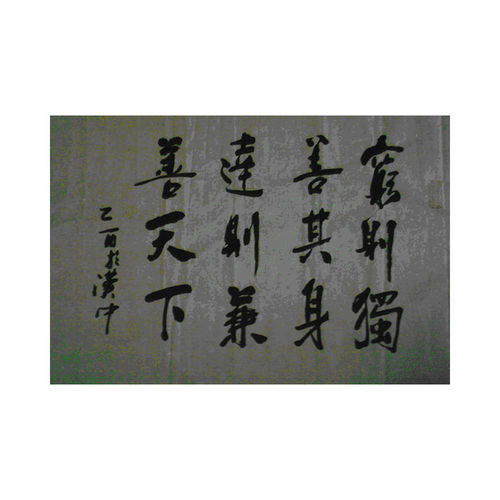 窮則獨
善其身
達則兼
善天下
乙酉於漢中